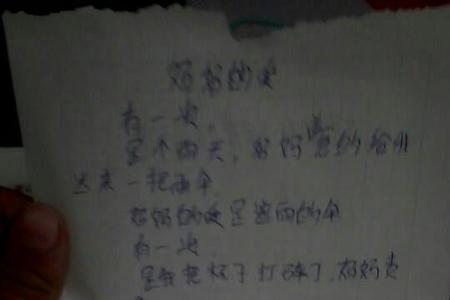 妈妈的爱
有一次,
是个雨天,妈妈 的给我
送来一把雨伞
妈妈的爱是遮雨的伞
有一次,
是我把杯子打碎了,妈妈